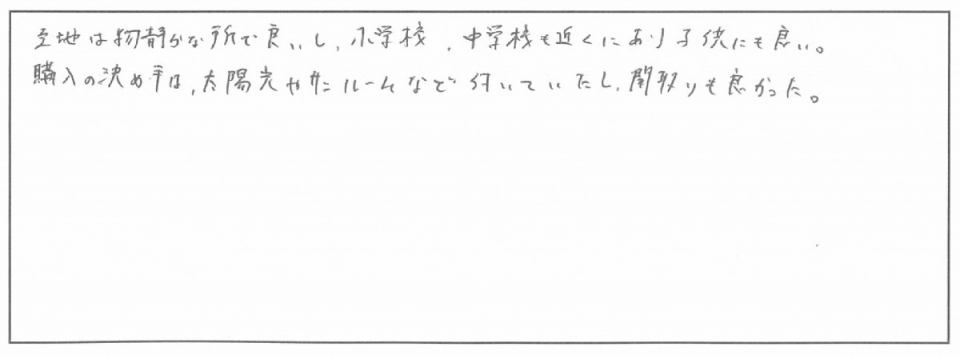 立地は物静かな所で良いし、小学校、中学校も近くにあり子供にも良い。
購入の決め手は、太陽光やサンルームなど付いていたし、間取りも良かった。